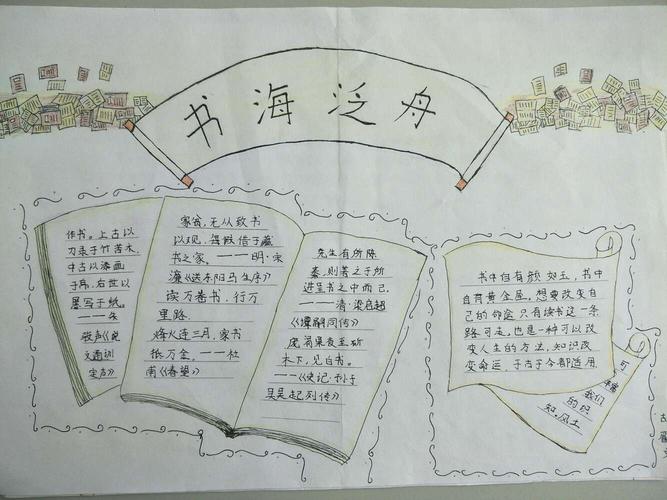 书海泛舟
作书。上古以
刀录于竹若木,
中古以漆画
于帛,后世以
墨写于纸。
———朱
骏声《说
文通训
定声》
家贫,无从致书
以观,每假借于藏
书之家,———明·宋
濂《送东阳马生序》
读万卷书,行万
里路.
烽火连三月,家书
抵万金,———杜
甫《春望》
先生有所陈
奏,则著之于所
进呈书之中而已.
———清·梁启超
《谭嗣同传》
庞涓果夜至斫
木下,见白书。
———《史记·孙子
吴起列传》
书中自有颜如玉,书中
自有黄金屋,想要改变自
己的命途,只有读书这一条
路可走,也是一种可以改
变人生的方法,知识改
变命运,于古于今都适用
可
我们
的织
知,风土
古